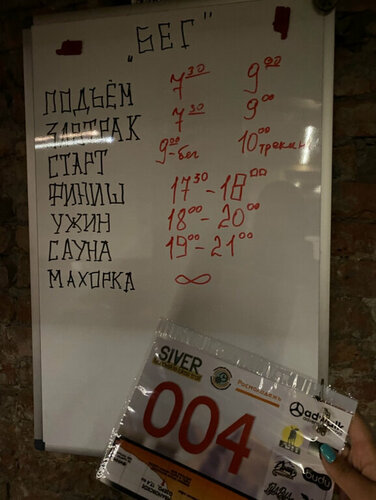 „БЕГ"
ПОДЪЁМ 7³⁰ 9⁰⁰
ЗАВТРАК 7³⁰ 9⁰⁰
СТАРТ 9⁰⁰-бег 10⁰⁰трекинг
ФИНИШ 17³⁰-18⁰⁰
УЖИН 18⁰⁰-20⁰⁰
САУНА 19⁰⁰-21⁰⁰
МАХОРКА ∞
SIVER
РОСМОЛОДЁЖЬ
004
budu